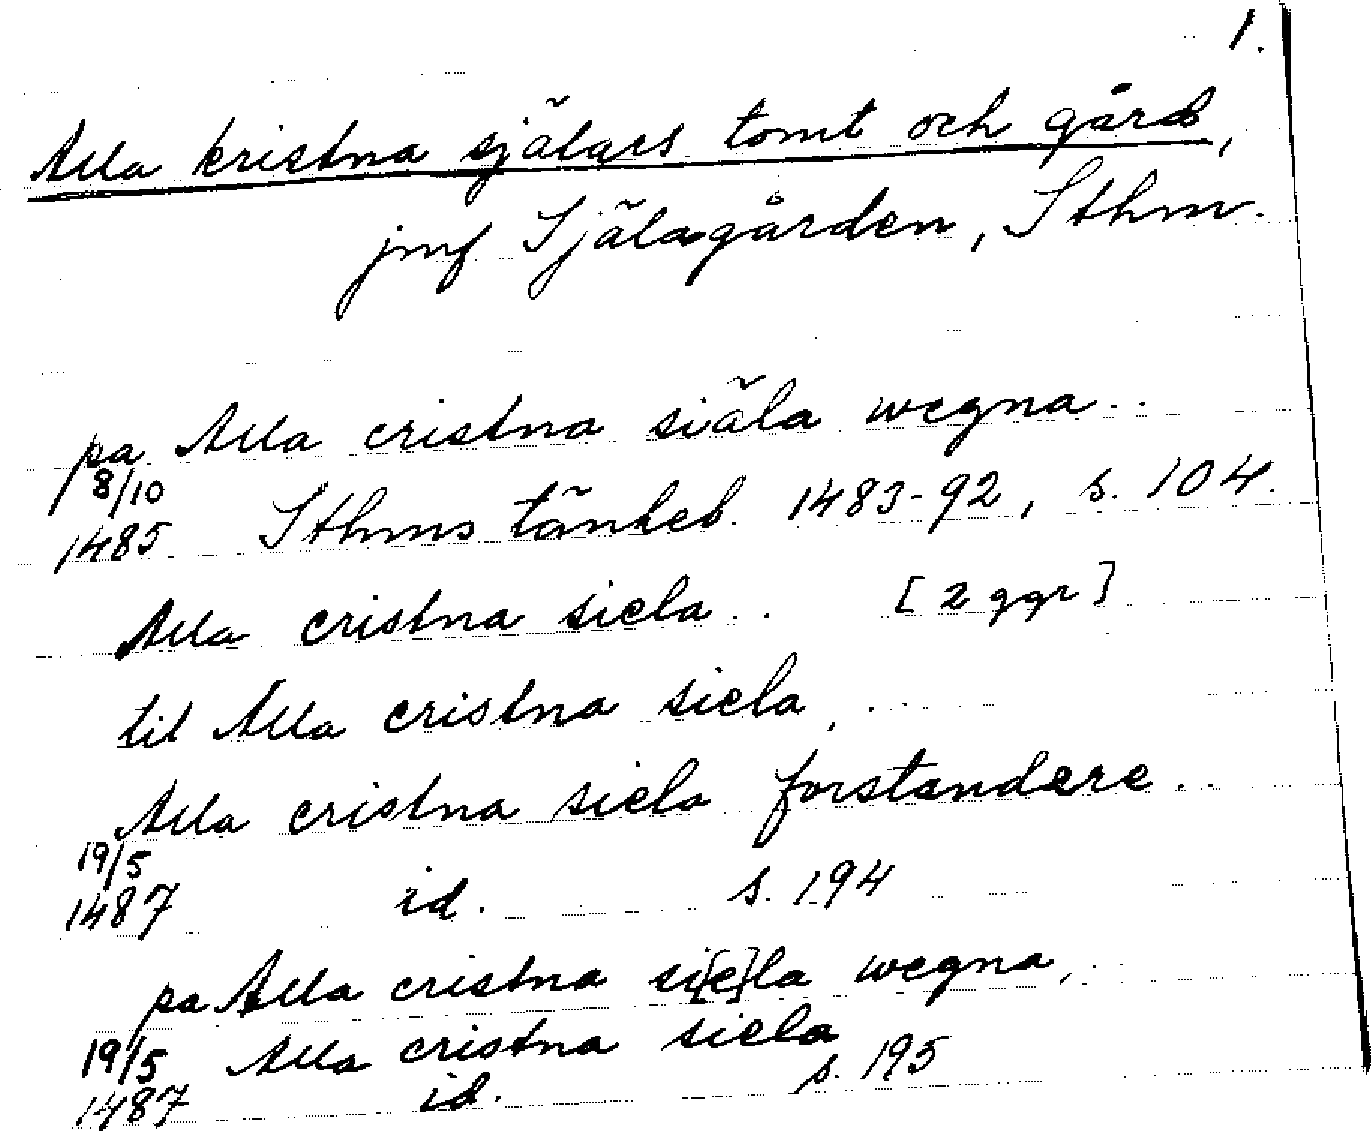 1.
Alla kristna själars tomt och gård,
jmf. Själagården, Sthm.
pa Alla cristna siäla wegna..
8/10
1485 Sthms tänkeb. 1483-92, s. 104.
Alla cristna siela.. [2 ggr]
til Alla cristna siela,....
Alla cristna siela forstandere..
19/5
1487 id. s. 194
pa Alla cristna si[e]la wegna,.
19/5 Alla cristna siela
1487 id. s. 195